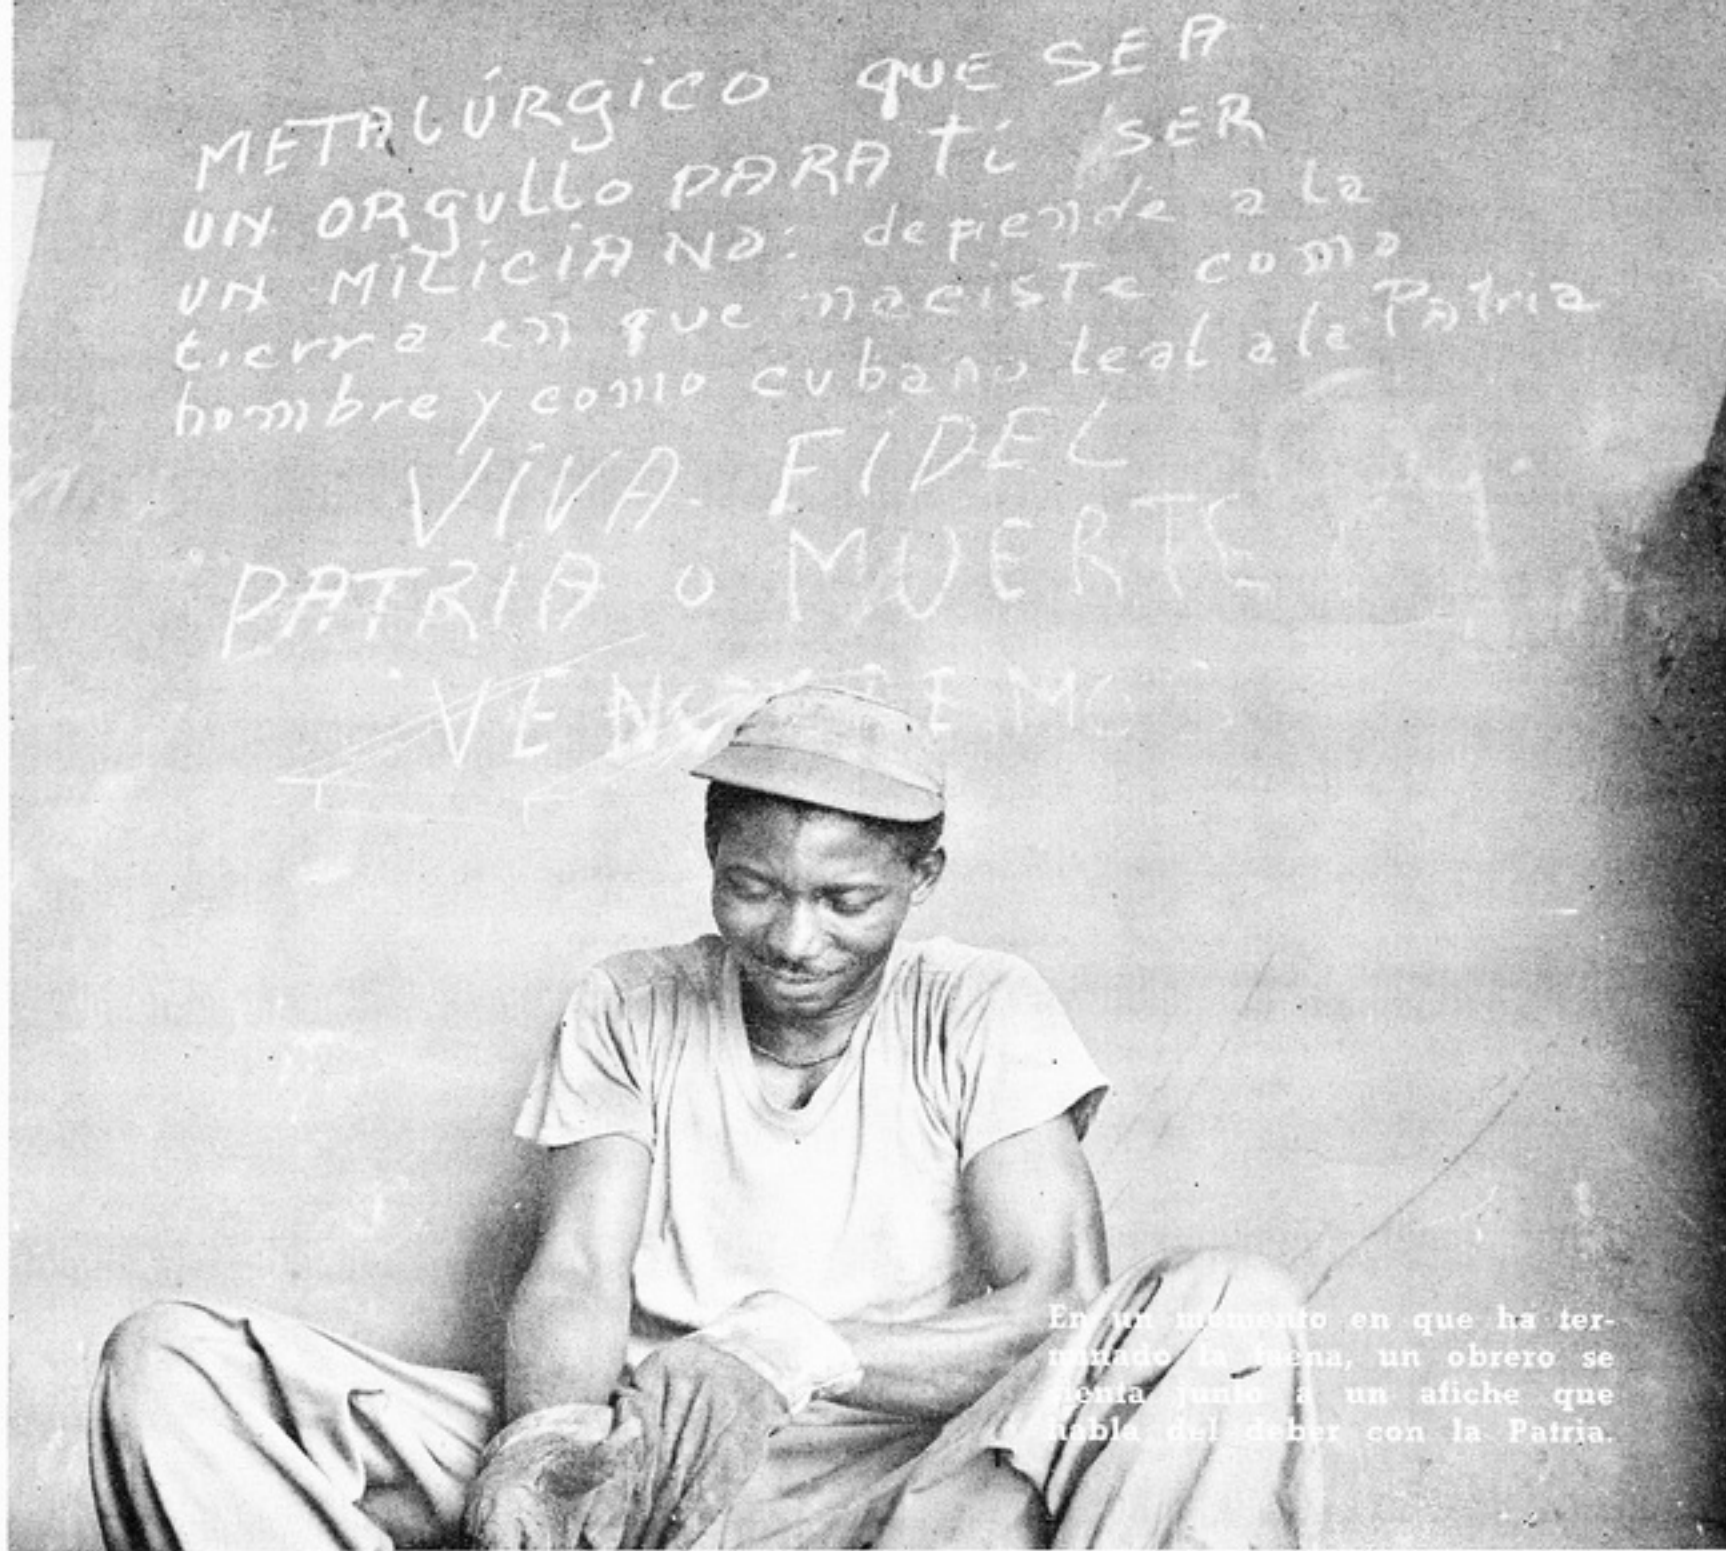 METALÚRGICO QUE SEA
UN ORGULLO PARA ti SER
UN MILICIANO: depiende a la
tierra en que naciste como
hombre y como cubano leal a la Patria
VIVA FIDEL
PATRIA o MUERTE
En un momento en que ha ter-
minado la faena, un obrero se
sienta junto a un afiche que
habla del deber con la Patria.